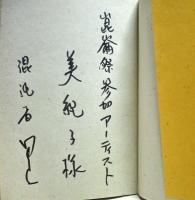 崑崙祭参加アーティスト
美紀子様
混沌石